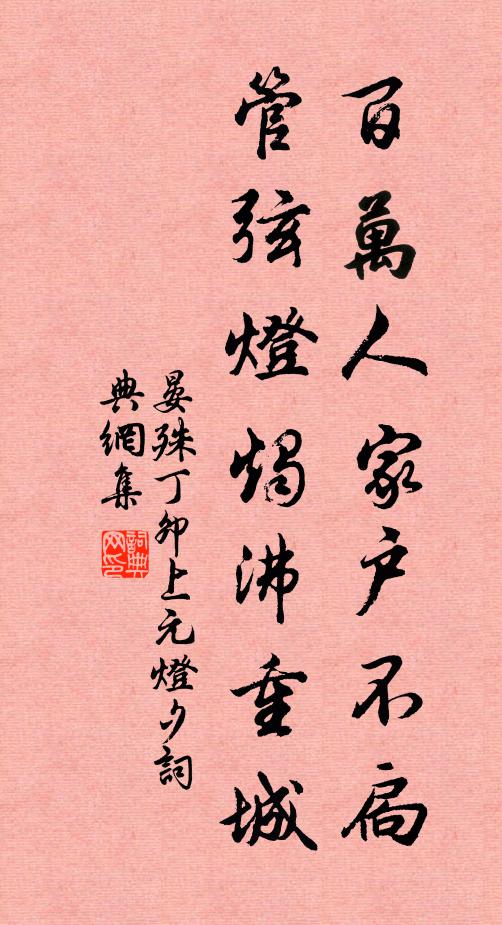 百萬人家戶不扃
管弦燈燭沸重城
晏殊丁卯上元燈夕詞
典網集
詞典網印